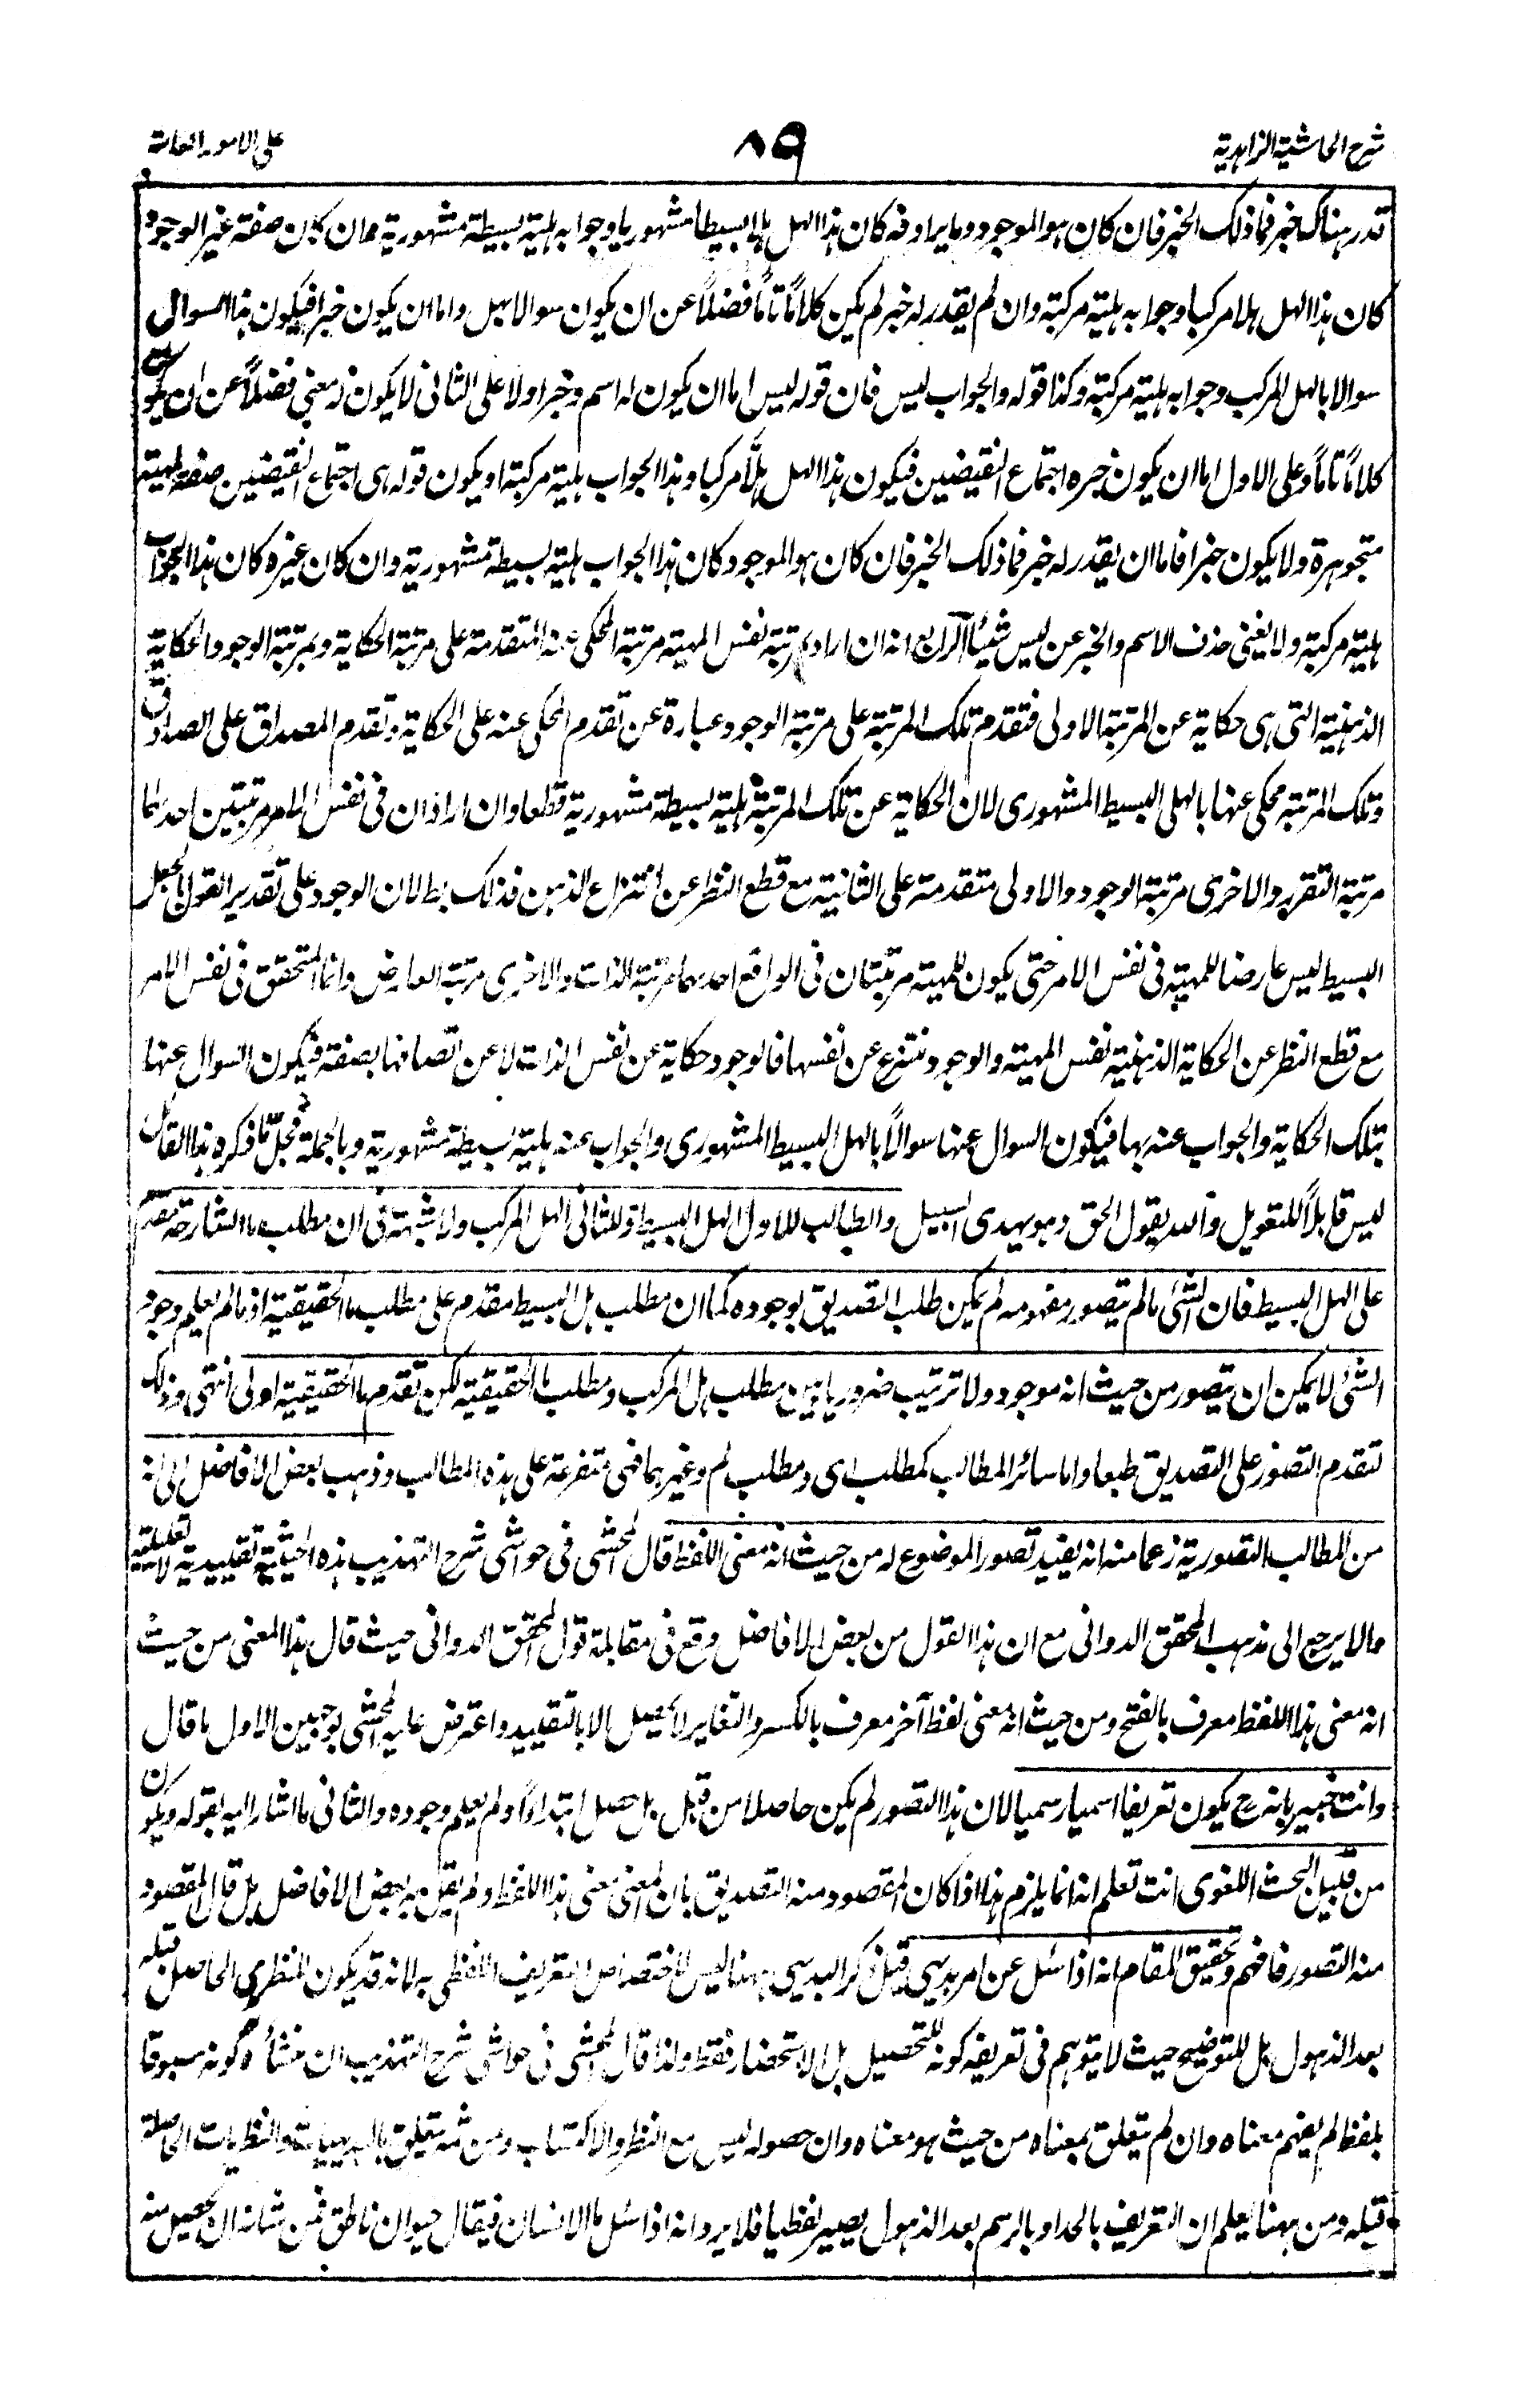 شرح الحاشية الزاهدية
٨٩
على الامور العامة
قدر هناك خبر فما ذلك الخبر فان كان هو الموجود وما يرادفه كان هذا الهل هلا بسيطا مشهوريا وجوابه هلية بسيطة مشهورية وان كان صفة غير الوجود
كان هذا الهل هلا مركبا وجوابه هلية مركبة وان لم يقدر له خبر لم يكن كلاماً تاماً فضلاً عن ان يكون سوالا بهل واما ان يكون خبرا فيكون هذا السوال
سوالا بالهل المركب وجوابه هلية مركبة وكذا قوله والجواب ليس فان قوله ليس اما ان يكون له اسم وخبر اولا على الثانى لا يكون ذا معنى فضلاً عن ان يكون
كلاماً تاماً وعلى الاول اما ان يكون خبره اجتماع النقيضين فيكون هذا الهل هلاً مركبا وهذا الجواب هلية مركبة او يكون قوله هى اجتماع النقيضين صفة لمهية
متجوهرة ولا يكون خبرا فاما ان يقدر له خبر فما ذلك الخبر فان كان هو الموجود كان هذا الجواب هلية بسيطة مشهورية وان كان غيره كان هذا الجواب
هلية مركبة ولا يغنى حذف الاسم والخبر عن ليس شيئا الرابع انه ان اراد بمرتبة نفس المهية مرتبة المحكى عنه المتقدمة على مرتبة الحكاية وبمرتبة الوجود الحكاية
الذهنية التى هى حكاية عن المرتبة الاولى فتقدم تلك المرتبة على مرتبة الوجود عبارة عن تقدم المحكى عنه على الحكاية وتقدم المصداق على الصادق
وتلك المرتبة محكى عنها بالهلى البسيط المشهورى لان الحكاية عن تلك المرتبة هلية بسيطة مشهورية قطعا وان اراد ان فى نفس الامر مرتبتين احدهما
مرتبة التقرر والاخرى مرتبة الوجود والاولى متقدمة على الثانية مع قطع النظر عن انتزاع الذهن فذلك بط لان الوجود على تقدير القول بالجعل
البسيط ليس عارضا للمهية فى نفس الامر حتى يكون للمهية مرتبتان فى الواقع احدهما مرتبة الذات والاخرى مرتبة العارض وانما المتحقق فى نفس الامر
مع قطع النظر عن الحكاية الذهنية نفس المهية والوجود منتزع عن نفسها فالوجود حكاية عن نفس الذات لا عن اتصافها بصفة فيكون السوال عنها
بتلك الحكاية والجواب عنه بها فيكون السوال عنها سوالاً بالهل البسيط المشهورى والجواب عنه هلية بسيطة مشهورية وبالجملة فجلّ ما ذكره هذا القائل
ليس قابلاً للتعويل والله يقول الحق وهو يهدى السبيل والطالب للاول الهل البسيط وللثانى الهل المركب ولا شبهة فى ان مطلب ما الشارحة مقدم
على الهل البسيط فان الشئ ما لم يتصور مفهومه لم يمكن طلب التصديق بوجوده كما ان مطلب هل البسيط مقدم على مطلب ما الحقيقية اذ ما لم يعلم وجود
الشئ لا يمكن ان يتصور من حيث انه موجود ولا ترتيب ضروريا بين مطلب هل المركب ومطلب ما الحقيقية لكن تقدم ما الحقيقية اولى انتهى وذلك
لتقدم التصور على التصديق طبعا واما سائر المطالب كمطلب اى ومطلب لم وغيرهما فهى متفرعة على هذه المطالب وذهب بعض الافاضل الى انه
من المطالب التصورية زعما منه انه يفيد تصور الموضوع له من حيث انه معنى اللفظ قال المحشى فى حواشى شرح التهذيب هذه الحيثية تقييدية لا تعليلية
والا يرجع الى مذهب المحقق الدوانى مع ان هذا القول من بعض الافاضل وقع فى مقابلة قول المحقق الدوانى حيث قال هذا المعنى من حيث
انه معنى هذا اللفظ معرف بالفتح ومن حيث انه معنى لفظ آخر معرف بالكسر والتغاير لا يحصل الا بالتقييد واعترض عليه المحشى بوجهين الاول ما قال
وانت خبير بانه ح يكون تعريفا اسميا رسميا لان هذا التصور لم يكن حاصلا من قبل بل حصل ابتداءً ولم يعلم وجوده والثانى ما اشار اليه بقوله ويكون
من قبيل البحث اللغوى انت تعلم انه انما يلزم هذا اذا كان المقصود منه التصديق بان المعنى معنى هذا اللفظ ولم يقل به بعض الافاضل بل قال المقصود
منه التصور فافهم وتحقيق المقام انه اذا سئل عن امر بديهى قبل ذكر البديهى ههنا ليس لاختصاص التعريف اللفظى به لانه قد يكون للنظرى الحاصل قبله
بعد الذهول بل للتوضيح حيث لا يتوهم فى تعريفه كونه للتحصيل بل الاستحضار فقط ولذا قال المحشى فى حواشى شرح التهذيب ان منشأه كونه مسبوقا
بلفظ لم يفهم معناه وان لم يتعلق بمعناه من حيث هو معناه وان حصوله ليس مع النظر والاكتساب ومن ثمه يتعلق بالبديهيات والنظريات الحاصلة
قبله ومن ههنا يعلم ان التعريف بالحد او بالرسم بعد الذهول يصير لفظيا فلا يرد انه اذا سئل ما الانسان فيقال حيوان ناطق فمن شانه ان يحصل منه